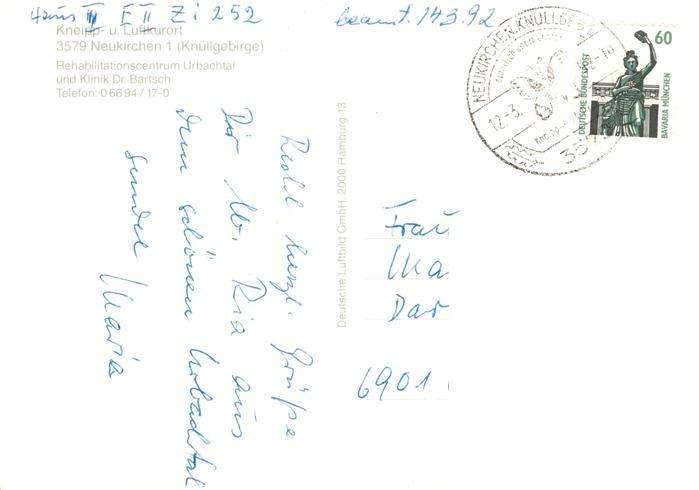 Haus II E II Zi 252
Kneipp- u. Luftkurort
3579 Neukirchen 1 (Knüllgebirge)
Rehabilitationszentrum Urbachtal
und Klinik Dr. Bartsch
Telefon: 0 66 94 / 17-0
14.3.92
Recht herzl. Grüße
Dir lb. Ria aus
dem schönen Urbachtal
sendet Maria
Deutsche Luftbild GmbH, 2000 Hamburg 13
NEUKIRCHEN, KNÜLLGEB
12.-3.
60
DEUTSCHE BUNDESPOST
BAVARIA MÜNCHEN
Frau
Dar
6901